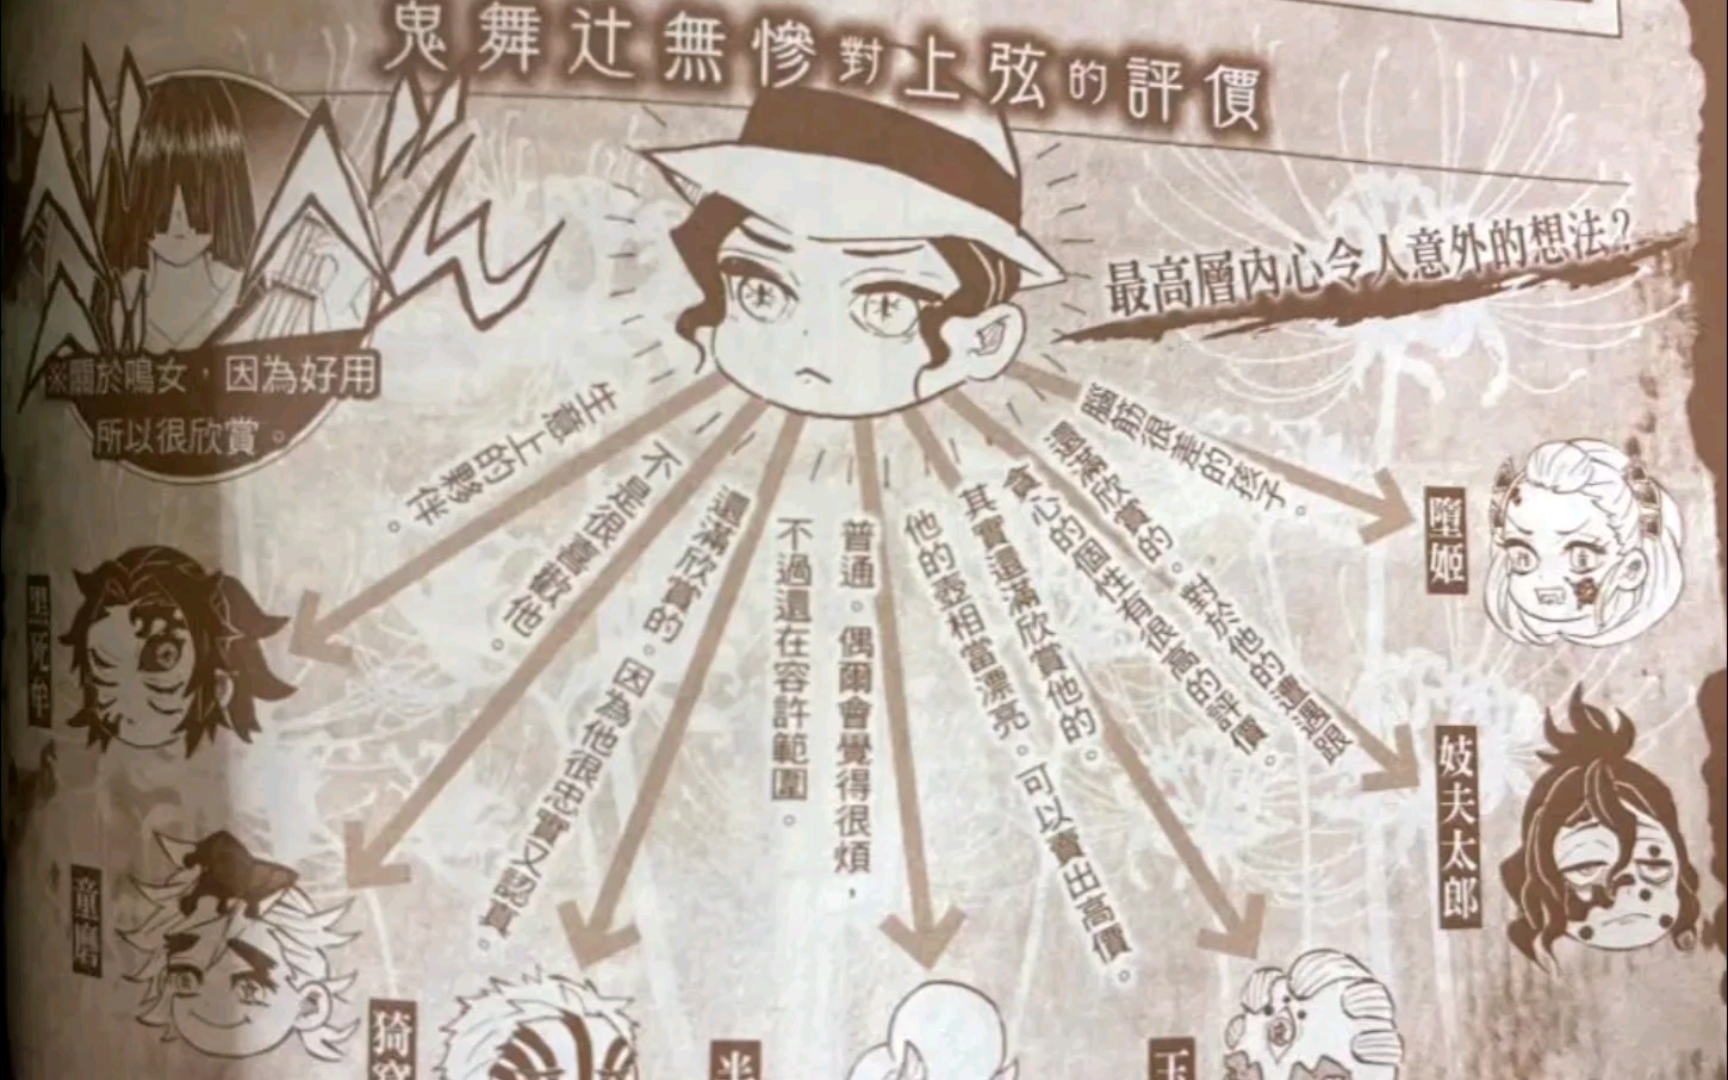 鬼舞辻無慘對上弦的評價
最高層內心令人意外的想法？
※關於鳴女，因為好用
所以很欣賞。
生意上的夥伴。
黑死牟
不是很喜歡他。
童磨
還滿欣賞的。因為他很忠實又認真。
猗窩
普通。偶爾會覺得很煩，
不過還在容許範圍。
半
其實還滿欣賞他的。
他的壺相當漂亮。可以賣出高價。
玉
還滿欣賞的。對於他的遭遇跟
貪心的個性有很高的評價。
妓夫太郎
腦筋很差的孩子。
墮姬